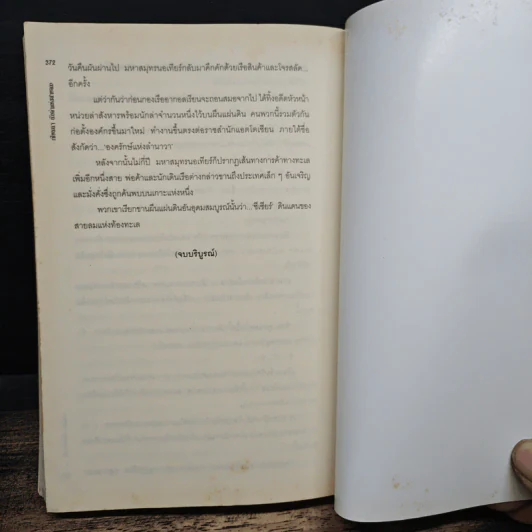 372
วันคืนผันผ่านไป มหาสมุทรนอเทียร์กลับมาคึกคักด้วยเรือสินค้าและโจรสลัด...
อีกครั้ง
แต่ว่ากันว่าก่อนกองเรืออาถอลเรียนจะถอนสมอจากไป ได้ทิ้งอดีตหัวหน้า
หน่วยล่าสังหารพร้อมนักล่าจำนวนหนึ่งไว้บนผืนแผ่นดิน คนพวกนี้รวมตัวกัน
ก่อตั้งองค์กรขึ้นมาใหม่ ทำงานขึ้นตรงต่อราชสำนักแอดไดเซียน ภายใต้ชื่อ
สังกัดว่า...'องครักษ์แห่งลำนาวา'
หลังจากนั้นไม่กี่ปี มหาสมุทรนอเทียร์ก็ปรากฏเส้นทางการค้าทางทะเล
เพิ่มอีกหนึ่งสาย พ่อค้าและนักเดินเรือต่างกล่าวขานถึงประเทศเล็ก ๆ อันเจริญ
และมั่งคั่งซึ่งถูกค้นพบบนเกาะแห่งหนึ่ง
พวกเขาเรียกขานผืนแผ่นดินอันอุดมสมบูรณ์นั้นว่า...'ซีเซียร์' ดินแดนของ
สายลมแห่งท้องทะเล
(จบบริบูรณ์)